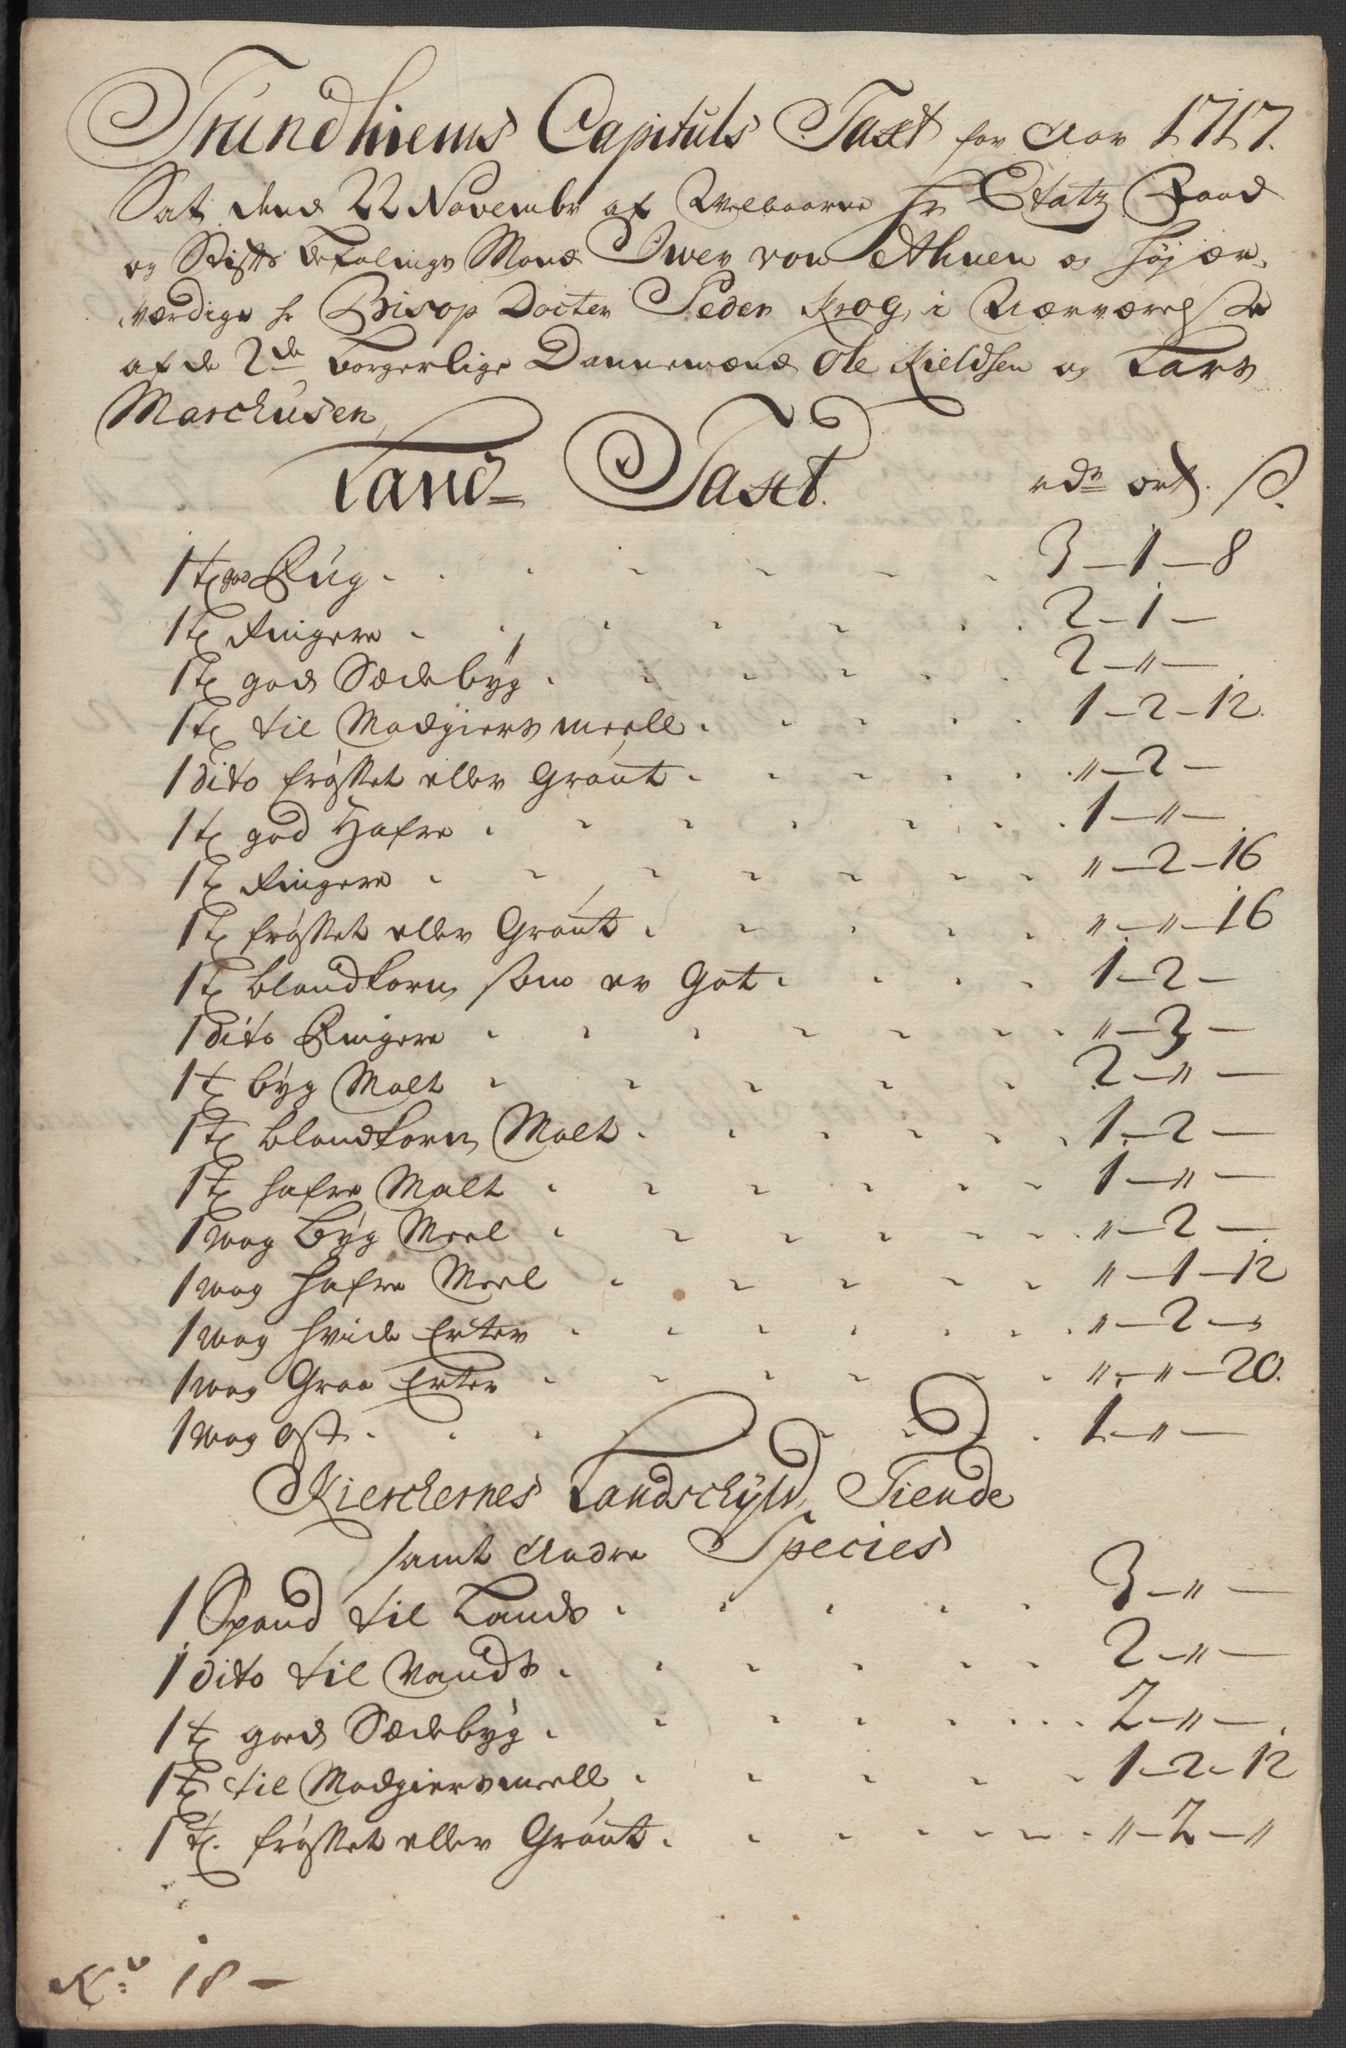 Trundhiems Capituls Taxt for Aar 1717.
Sat dend 22 Novembr af Welbaarne Hr Etatz Raad
og Stiftz befalings Mand Iwer von Ahnen og høj ær„
værdige Hr Bisop Docter Peder Krog, i Nærværelse
af de 2de borgerlige Dannemænd Ole Kieldsen og Lars
Marchusen
Land= Taxt. rdr ort. ß.
1 tø god Rug 3—1—8
1 tø Ringere 2—1—
1 tø god Sædebÿg 2—"—
1 tø til Madgiers meell 1—2—12.
1 dito frosset eller Grønt "—2—
1 tø god Hafre 1—"—
1 tø Ringere "—2—16
1 tø frosset eller Grønt "—"—16
1 tø blandkorn som er Got 1—2—
1 dito Ringere "—3—
1 tø bÿg Malt 2—"—
1 tø blandkorn Malt 1—2—
1 tø hafre Malt 1—"—
1 wog Bÿg Meel "—2—
1 wog hafre Meel "—1—12
1 wog hvide Erter "—2—
1 wog Graa Erter "—"—20.
1 wog ost 1—"—
Kierchernes Landschÿld, Tiende
samt Andre Species
1 Spand til Lands 3—"—
1 dito til Vands 2—"—
1 tø goed Sædebÿg 2—"—
1 tø til Madgiersmeell 1—2—12
1 tø. frosset eller Grønt "—2—"
No 18—